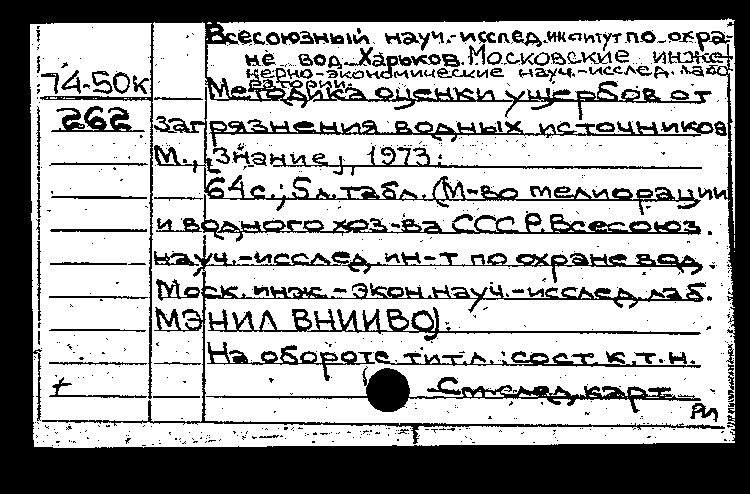 Всесоюзный науч.-исслед. институт по охра-
не вод. Харьков. Московские инже-
нерно-экономические науч.-исслед. лабо
ратории.
74-50к Методика оценки ущербов от
262 загрязнения водных источников
М., [Знание], 1973.
64 с.; 5 л. табл. (М-во мелиорации
и водного хоз-ва СССР. Всесоюз.
науч.-исслед. ин-т по охране вод
Моск. инж.-экон. науч.-исслед. лаб.
МЭНИЛ ВНИИВО).
На обороте тит. л.: сост. к.т.н.
+ См. след. карт
РЛ